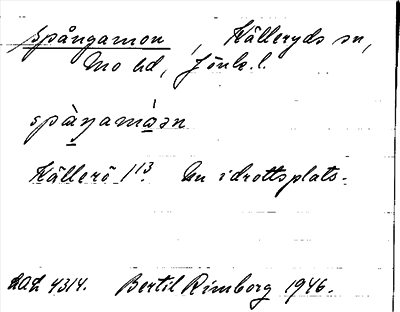 Spångamon, Källeryds sn,
Mo hd, Jönk. l.
spàŋamà̱ən
Källerö 1¹³. Nu idrottsplats.
DAL 4314. Bertil Rimborg 1946.